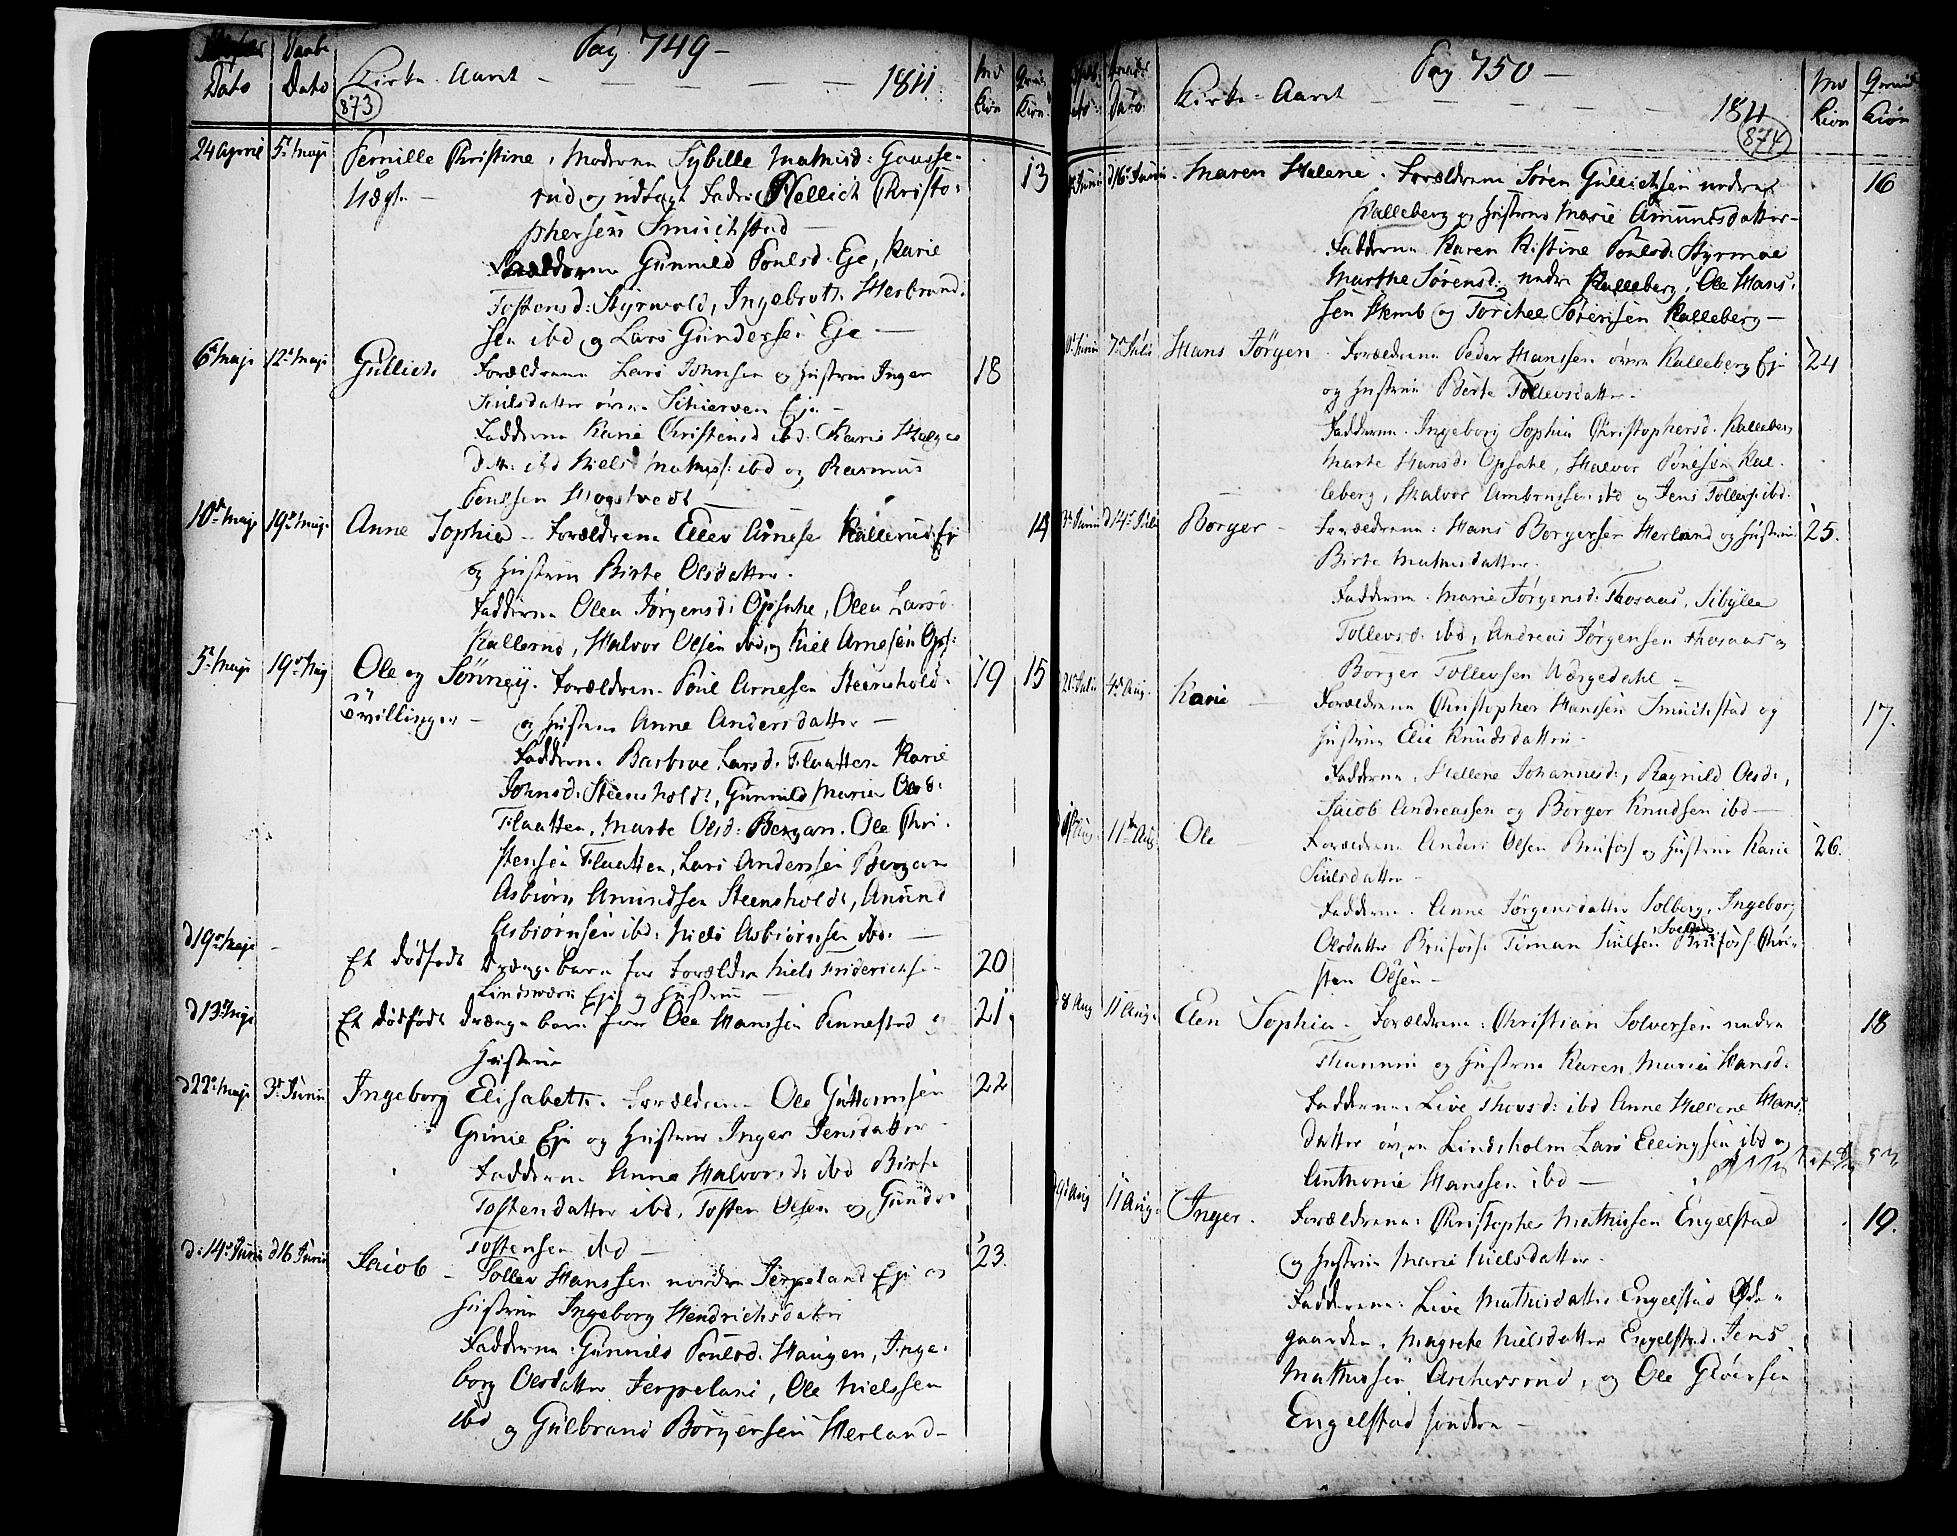 Pag 749 -
Dato
Daabs Dato
Kirke Aaret - - - - 1811
Kiøn
Kiøn
873
24 April 5. Maji Pernille Christine, Moderen Sybille Mathisd: Gausse- 13
Uægte - rud og udlagt Fader Nellich Christo-
phersen Smuchstad -
Gunnild Poulsd. Eje, Karie
Tostensd: Styrvold, Ingebreth Herbrand-
sen ibd og Lars Gundersen Eje -
6 Maji 12 Maji Gullich Forældrene Lars Johnsen og Hustrue Inger 18
Juulsdatter øvre Schierven Eje -
Fadderne Karie Christensd ibd. Karie Helge
Dtr: ibd Niels Mathiss: ibd og Rasmus
Poulsen Mogstvedt -
10 Maji 19 Maji Anne Sophie - Forældrene Ellev Arnesen Kallerud Ej 14
og Hustrue Birte Olsdatter.
Fadderne Olea Jørgensd: Opsahe, Olea Larsd.
Kallerud, Halvor Olsen ibd, og Kiel Arnesen Ops:
5 Maji 19 Maj Ole og Sønney. Forældrene Poul Arnesen Steenshold 19 15
Tvillinger - og Hustrue Anne Andersdatter -
Fadderne Barbroe Larsd. Flaatten Karie
Johnsd. Steensholdt, Gunnild Marie Olsd.
Flaatten, Marte Olsd: Bergan. Ole Chri-
stensen Flaatten, Lars Anderssen Bergan
Asbiørn Amundsen Steensholdt, Amund
Asbiørnsen ibd. Niels Asbiørnsen ibd. -
d 19 Maji - Et dødfødt Drænge barn for Forældre Niels Friderichse- 20
Eje og Hustrue -
d 13 Maji Et dødfødt Drænge barn for Ole Hanssen Pennestad og 21
Hustrue
d 22 Maji 3. Junii Ingeborg Elisabeth. Forældrene Ole Guttormsen 22
Grinie Eje og Hustrue Inger Jensdatter
Fadderne Anne Halvorsd: ibd Birte
Tostensdatter ibd, Tosten Olsen og Gunder
Tostensen ibd -
d: 14 Junii d 16 Junii Jacob - Tollev Hanssen nordre Jerpeland Eje og 23.
Hustrue Ingeborg Hendrichsdatter
Fadderne: Gunnild Poulsd. Haugen, Inge-
borg Olsdatter Jerpeland, Ole Nielssen
ibd og Gulbrand Borgersen Herland -
Pag 750 -
Kirke-Aaret - - - - 1811
Kiøn
Kiøn
874
Junii d 16 Junii Maren Helene. Forældrene Søren Gullichsen nedre 16
Kalleberg og Hustrue Marie Amundsdatter -
Fadderne Karen Kistine Poulsd. Styrmoe
Marthe Sørensd: nedre Kalleberg, Ole Hans-
sen Hemb og Torchel Sørensen Kalleberg -
Junii 7 Julii Hans Jørgen Forældrene Peder Hanssen øvre Kalleberg Eje 24
og Hustrue Berte Tollevsdatter.
Fadderne. Ingeborg Sophie Christophersd. Kalleberg
Marte Hansd: Opsahe, Halvor Poulsen Kal-
leberg, Halvor Ambrossen ibd og Jens Tollevs: ibd.
Junii d 14 Julii Borger - Forældrene: Hans Borgersen Herland og Hustrue 25.
Birte Mathisdatter.
Fadderne. Marie Jørgensd. Thoraas, Sibylle
Tollevsd. ibd, Andreas Jørgensen Thoraas og
Borger Tollevsen Wærgedahl -
21 Julii 4 Aug. Karie - Forældrene Christopher Hanssen Smuchstad og 17.
Hustrue Elie Knudsdatter -
Fadderne, Hellene Johannesd:, Ragnild Olsd:,
Jacob Andreassen og Borger Knudsen ibd -
Aug. 11 Aug. Ole - Forældrene Anders Olsen Brufos og Hustrue Karie 26.
Juulsdatter -
Fadderne. Anne Jørgensdatter Solberg, Ingeborg
Olsdatter Brufos. Timan Juulsen Brufos Chri-
sten Olsen -
d 8 Aug 11 Aug. Elen Sophie - Forældrene: Christian Solversen nedre 18
Thammi og Hustrue Karen Marie Hansd.
Fadderne. Live Thorsd: ibd Anne Helene Hans-
datter øvre Lindsholm Lars Ellingsen ibd og
Anthonie Hanssen ibd -
9 Aug 11 Aug. Inger. Forældrene: Christopher Mathissen Engelstad 19.
og Hustrue Marie Nielsdatter -
Fadderne: Live Mathisdatter Engelstad Øde-
gaarden. Magrete Nielsdatter Engelstad. Jens
Mathissen Aschersrud, og Ole Gloersen
Engelstad søndre -